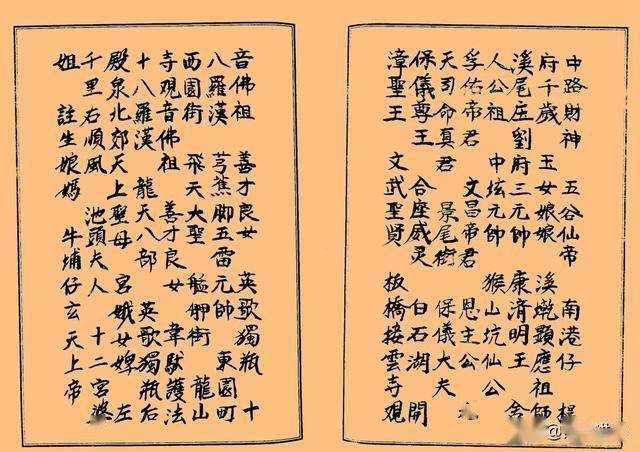 中路財神 五谷仙帝 南港仔 楊
府千歲 玉女娘娘 溪墘顯應祖師
溪尾庄劉府三元帥 康濟明王 舍
人公祖 中坛元帥 猴山坑仙公
孚佑帝君 文昌帝君 恩主公 九
天司命真君 景尾街 保儀大夫
保儀尊王 合座威灵 白石湖 開
漳聖王 文武聖賢 板橋接雲寺觀
音佛祖 善才良女 英歌獨瓶 十
八羅漢 芎蕉脚五雷元帥 東園町
西園街 飛天大聖 艋舺街 龍山
寺觀音佛祖 善才良女 韋馱護法
十八羅漢 龍天八部 英歌獨瓶后
殿泉北郊天上聖母 宮娥女婢 左
千里右順風 池頭夫人 十二宮婆
姐 註生娘媽 牛埔仔玄天上帝